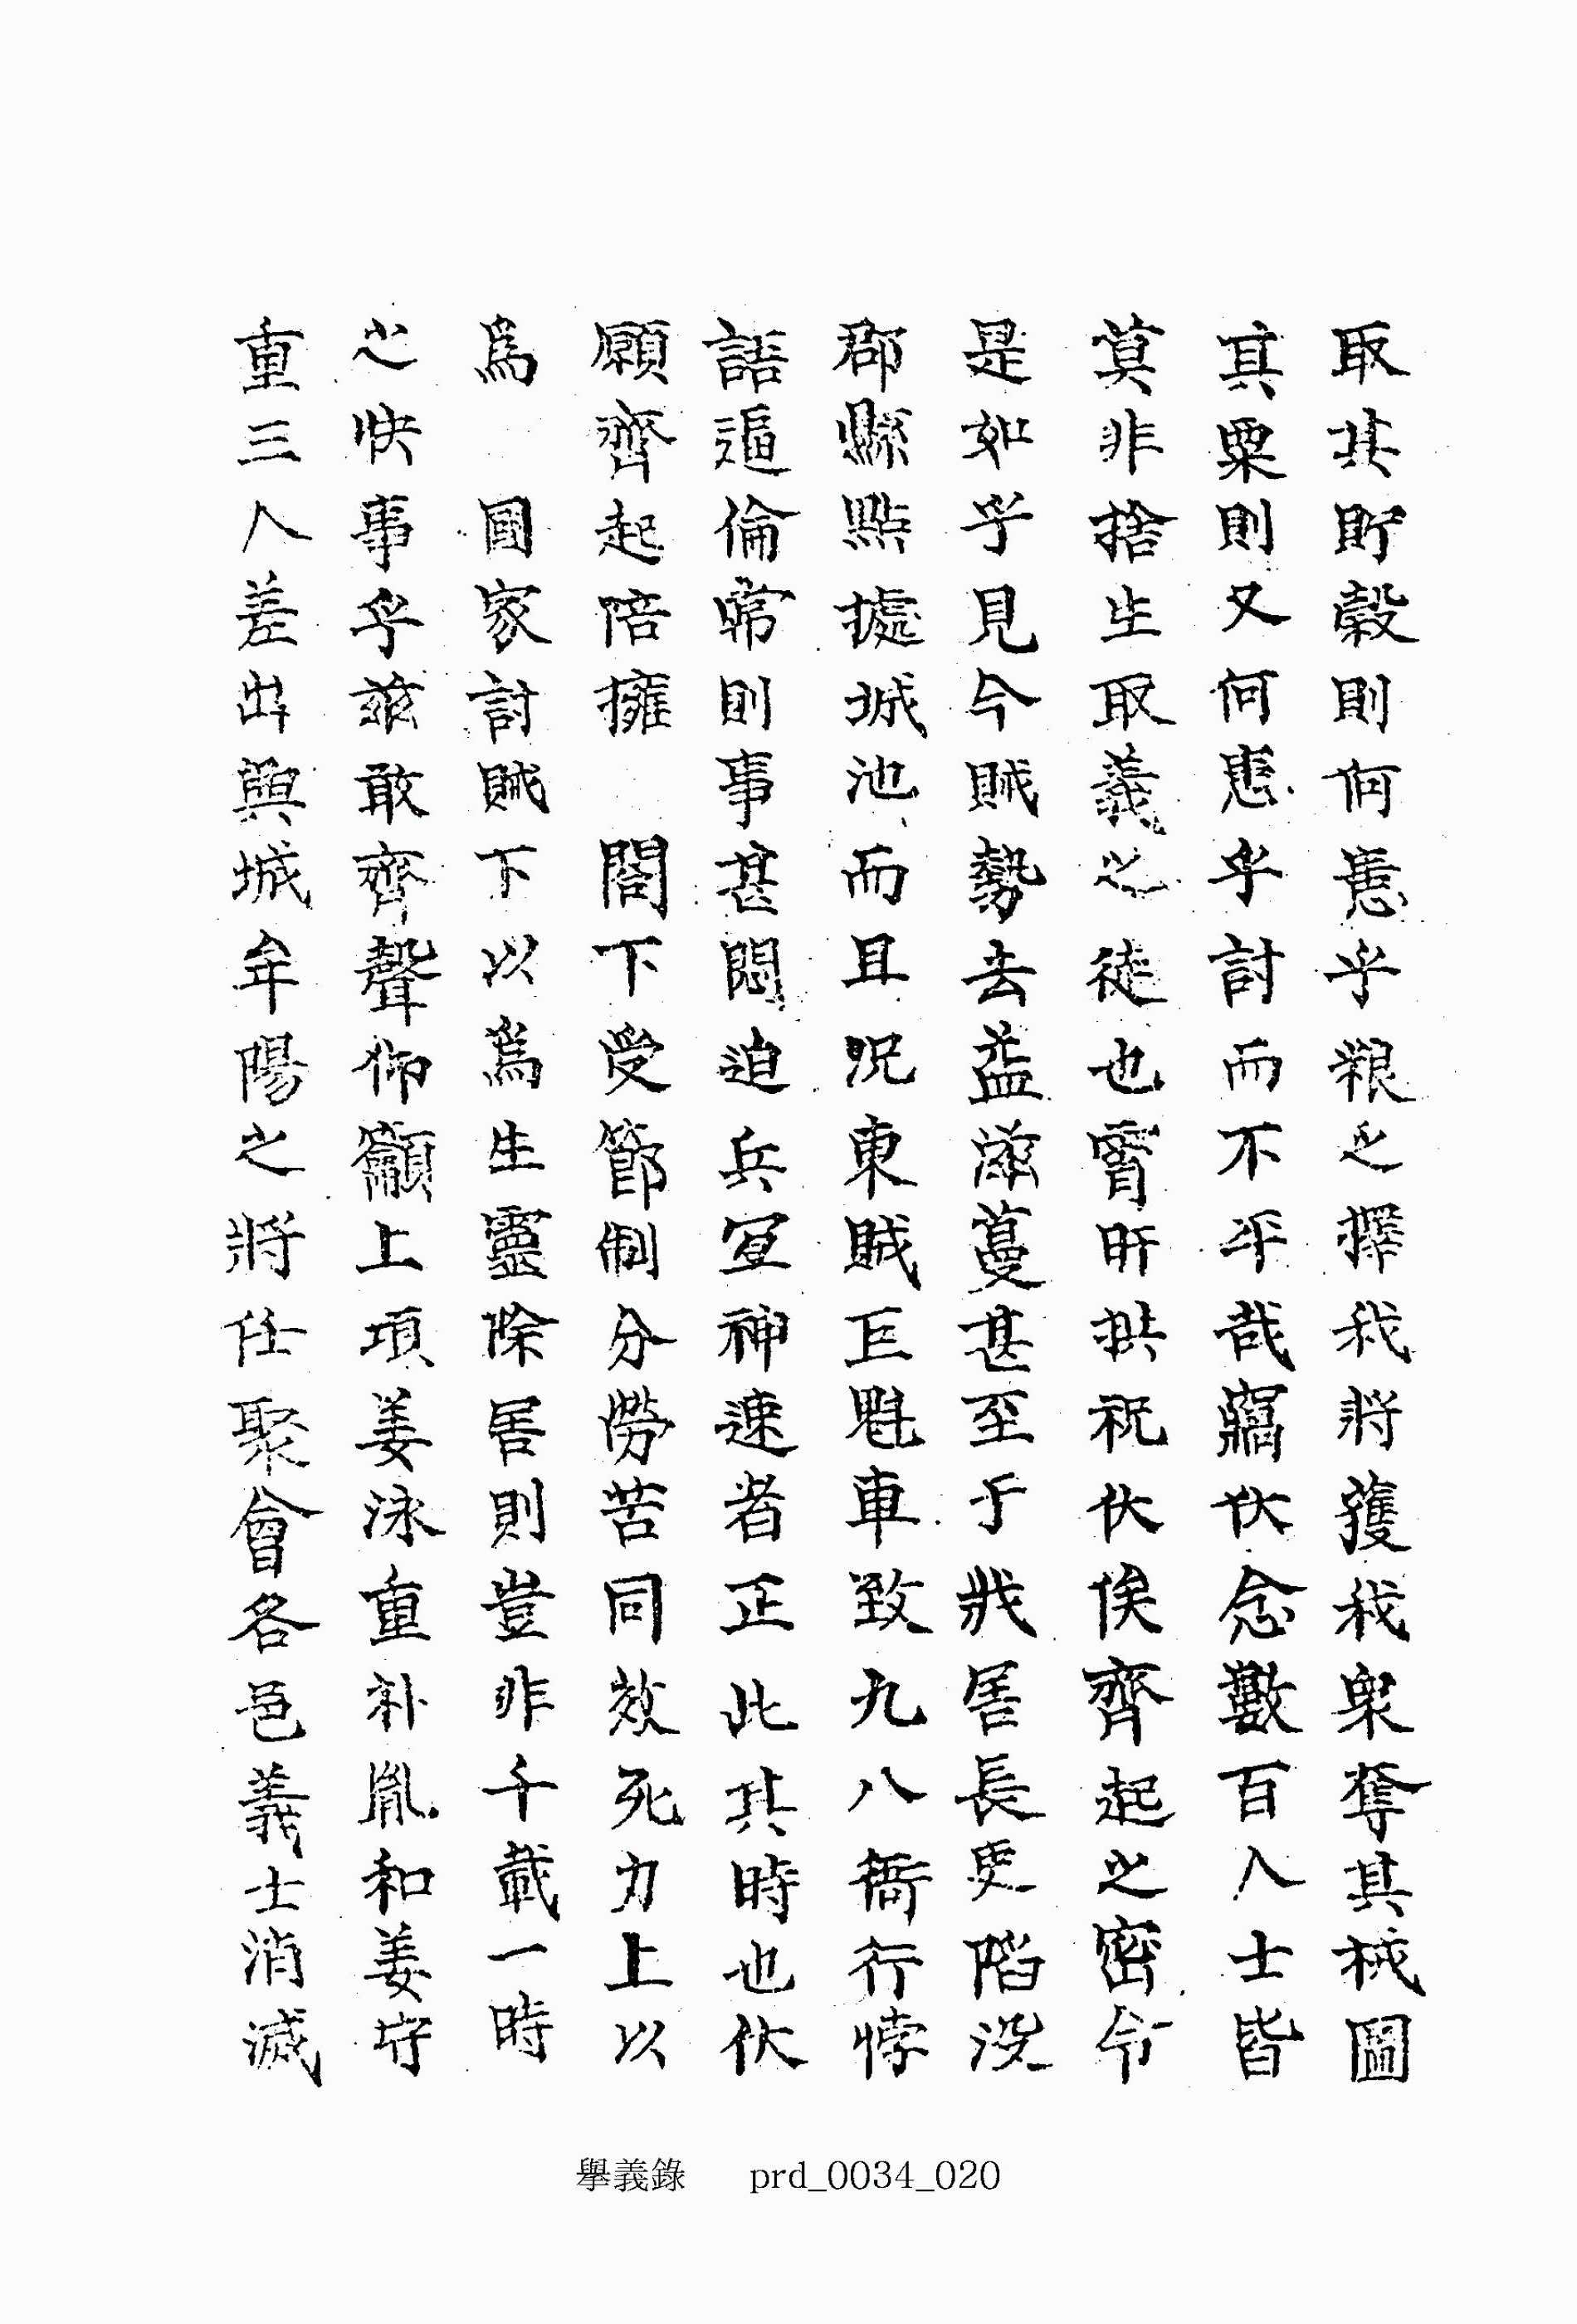 取其貯穀則何患乎粮之擇我將獲我衆奪其械圖
其粟則又何患乎討而不平哉竊伏念數百人士皆
莫非捨生取義之徒也宵旰拱祝伏俟齊起之密令
是如乎見今賊勢去益滋蔓甚至于戕害長吏陷没
郡縣點據城池而且呪東賊巨魁車致九八衙行悖
語逼倫常則事甚悶迫兵宜神速者正此其時也伏
願齊起陪擁 閤下受節制分勞苦同效死力上以
爲 國家討賊下以爲生靈除害則豈非千載一時
之快事乎玆敢齊聲仰籲上項姜泳重朴胤和姜守
重三人差出與城牟陽之將任聚會各邑義士消滅
擧義錄 prd_0034_020